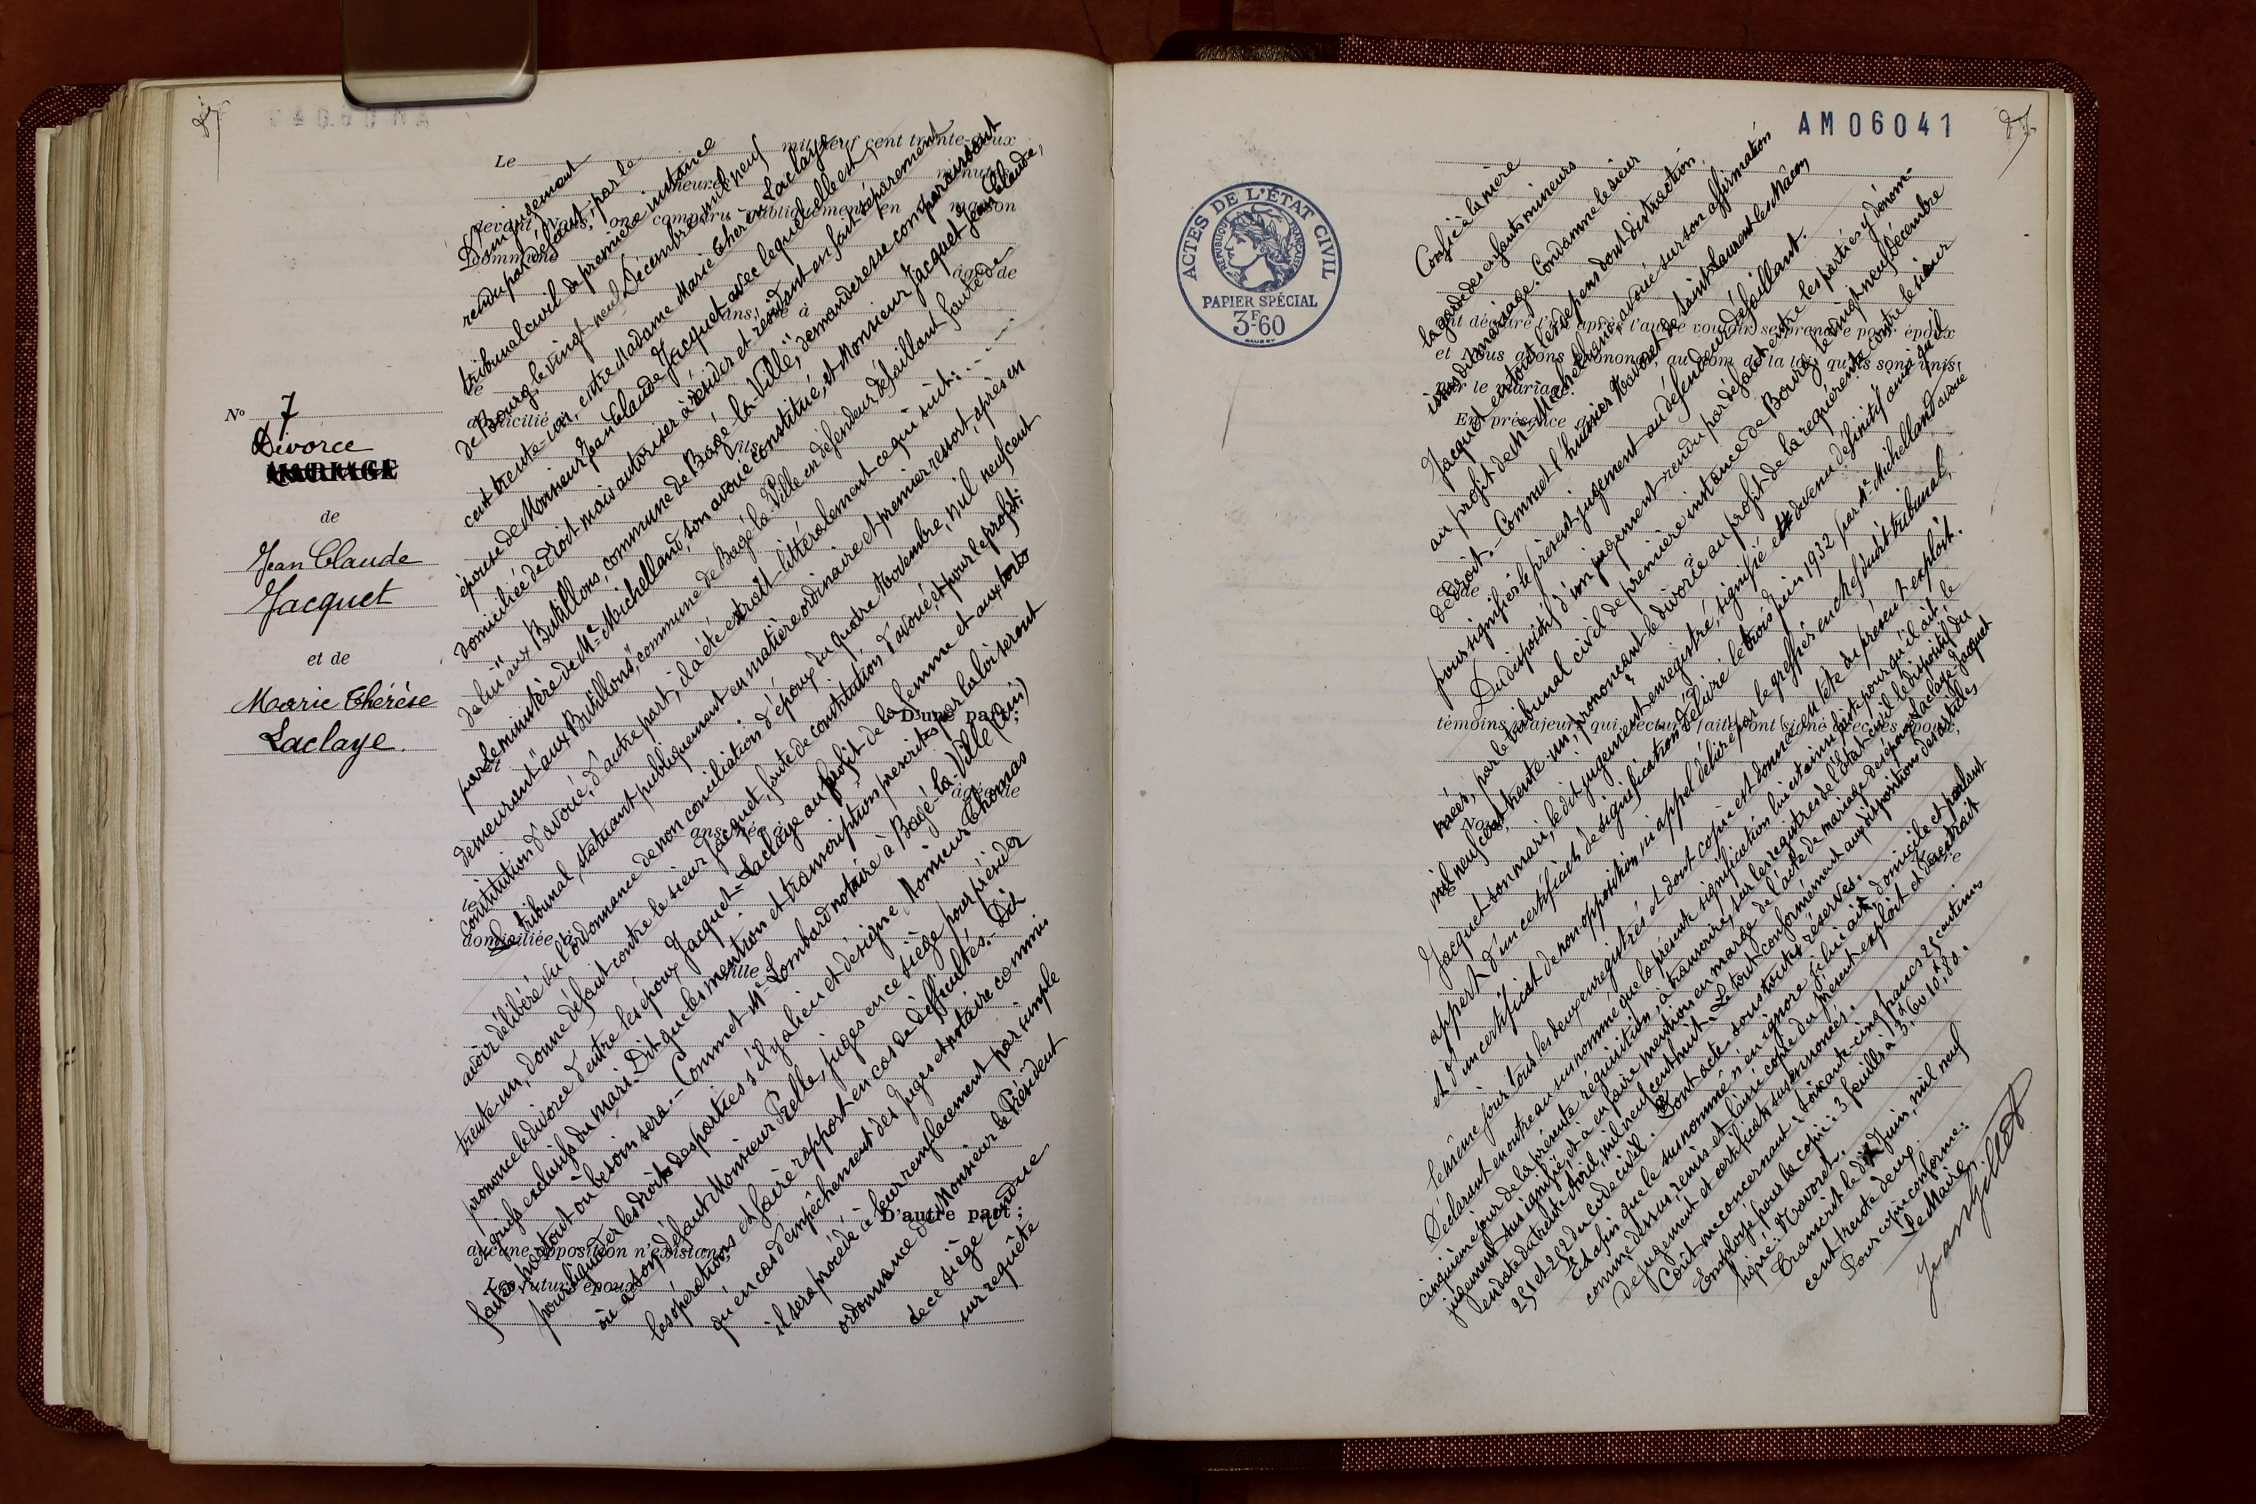 N° 7
Divorce
MARIAGE
de
Jean Claude
Jacquet
et de
Marie Thérèse
Laclaye.
Le mil neuf cent trente-deux
heure minutes
devant Nous, ont comparu publiquement en maison
commune
âgé de
ans, né à
le
domicilié
fils
D'une part;
et
âgée de
ans, née à
le
domiciliée à
fille
D'autre part;
aucune opposition n'existant.
Les futurs époux
D'un jugement
rendu par défaut, par le
tribunal civil de première instance
de Bourg le vingt neuf Décembre mil neuf
cent trente-un, entre Madame Marie Thérèse Laclaye
épouse de Monsieur Jean Claude Jacquet avec lequel elle est
domiciliée de droit mais autorisée à résider et résidant en fait séparément
de lui "aux Butillons, commune de Bagé-la-Ville", demanderesse comparaissant
par le ministère de Me Michelland, son avoué constitué, et Monsieur Jacquet Jean Claude,
demeurant "aux Butillons", commune de Bagé-la-Ville en défendeur défaillant faute de
constitution d'avoué, d'autre part, il a été extrait littéralement ce qui suit:
Le tribunal, statuant publiquement en matière ordinaire et premier ressort, après en
avoir délibéré vu l'ordonnance de non conciliation d'époux du quatre Novembre, mil neuf cent
trente-un, donne défaut contre le sieur Jacquet, faute de constitution d'avoué, et pour le profit:
prononce le divorce d'entre les époux Jacquet-Laclaye au profit de la femme et aux torts
et griefs exclusifs du mari. Dit que les mention et transcription prescrites par la loi seront
faites partout où besoin sera. - Commet Me Lombard notaire à Bagé-la-Ville (Ain)
pour liquider les droits des parties s'il y a lieu et désigne Monsieur Thomas
ou à son défaut Monsieur Prelle, juges en ce siège pour présider
les opérations et faire rapport en cas de difficultés. - Dit
qu'en cas d'empêchement des Juges et notaire commis
il sera procédé à leur remplacement par simple
ordonnance de Monsieur le Président
de ce siège rendue
sur requête
AM 06041
ACTES DE L'ÉTAT CIVIL
RÉPUBLIQUE FRANÇAISE
PAPIER SPÉCIAL
3F60
ont déclaré l'un après l'autre vouloir se prendre pour époux
et Nous avons prononcé, au nom de la loi, qu'ils sont unis
par le mariage.
En présence de
et de
témoins majeurs qui, lecture faite, ont signé avec les époux,
Nous,
Confie à la mère
la garde des enfants mineurs
issus du mariage. Condamne le sieur
Jacquet en tous les dépens dont distraction
au profit de Me Michelland, avoué sur son affirmation
de droit. - Commet l'huissier Navoret de Saint-Laurent-les-Mâcon
pour signifier le présent jugement au défendeur défaillant.
Du dispositif d'un jugement rendu par défaut entre les parties y dénom-
mées, par le tribunal civil de première instance de Bourg, le vingt neuf Décembre
mil neuf cent trente-un, prononçant le divorce au profit de la requérante contre le sieur
Jacquet son mari, le dit jugement enregistré, signifié et devenu définitif ainsi qu'il
appert d'un certificat de signification délivré le trois Juin 1932 par Me Michelland avoué
et d'un certificat de non opposition, ni appel délivré par le greffier en chef dudit tribunal,
le même jour tous les deux enregistrés et dont copie est donnée en tête du présent exploit.
Déclarant en outre au susnommé que la présente signification lui est ainsi faite pour qu'il ait, le
cinquième jour de la présente réquisition, à transcrire, sur les registres de l'état civil le dispositif du
jugement sus signifié, et à en faire mention en marge de l'acte de mariage des époux Laclaye Jacquet
en date du trente Avril, mil neuf cent huit. Le tout conformément aux dispositions des articles
251 et 252 du code civil. Dont acte, sous toutes réserves.
Et afin que le susnommé n'en ignore je lui ai, domicile et parlant
comme dessus, remis et laissé copie du présent exploit et des extrait
de jugement et certificats susénoncés.
Coût me concernant: soixante-cinq francs 25 centimes
Employé pour la copie: 3 feuilles à 3,60 10,80.
Signé: Navoret.
Transcrit le dix Juin, mil neuf
cent trente deux.
Pour copie conforme:
Le Maire,
Jean Gillet